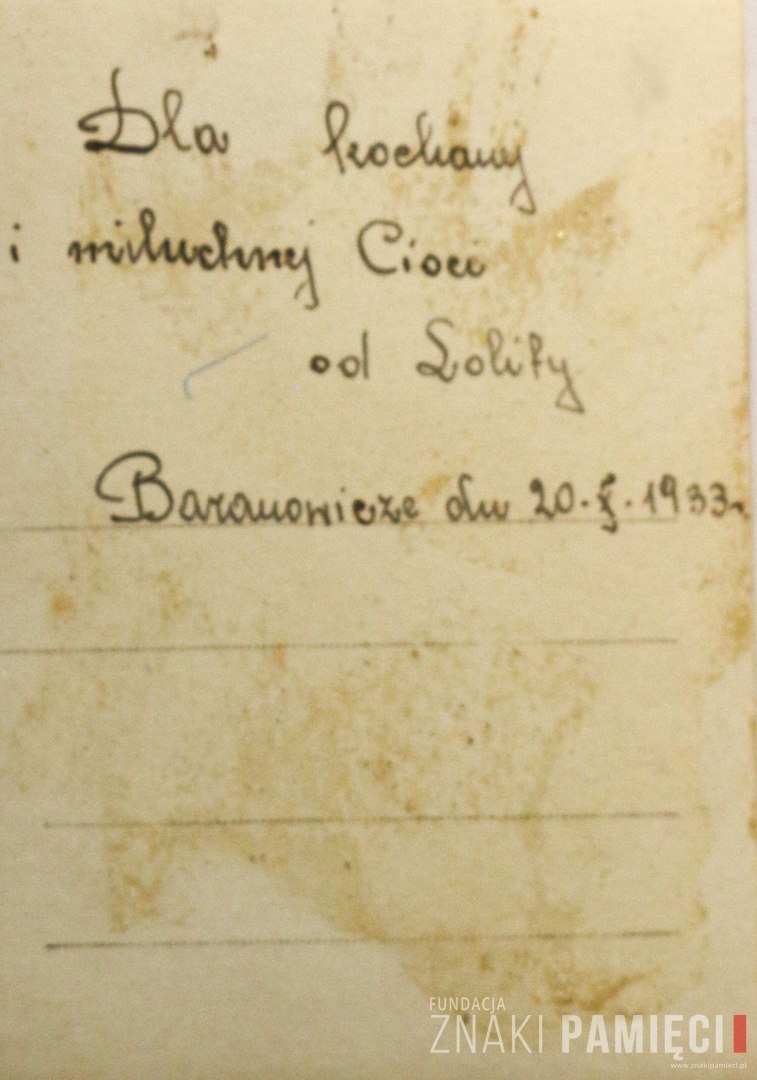 Dla kochanej
i miluchnej Cioci
od Lolity
Baranowicze dn 20.X.1933r.
FUNDACJA
ZNAKI PAMIĘCI
www.znakipamieci.pl